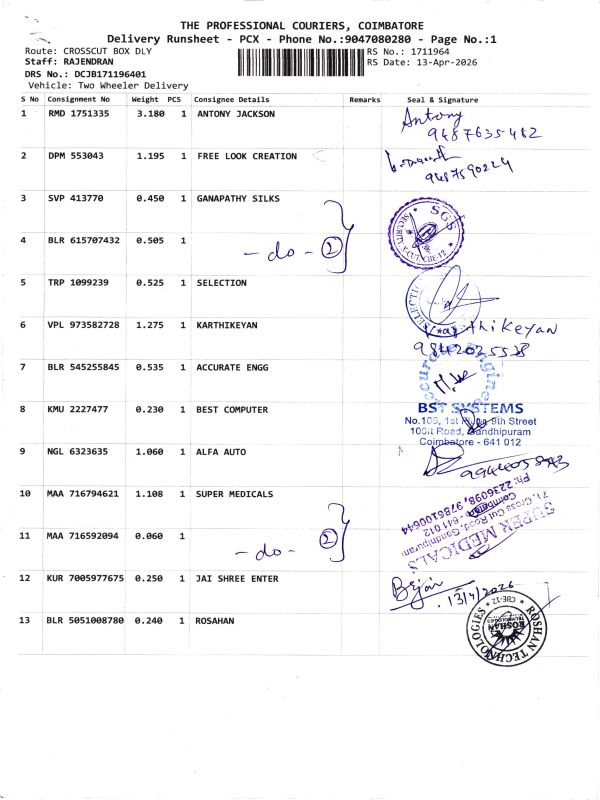 THE PROFESSIONAL COURIERS, COIMBATORE
Delivery Runsheet - PCX - Phone No.:9047080280 - Page No.:1
Route: CROSSCUT BOX DLY
RS No.: 1711964
Staff: RAJENDRAN
RS Date: 13-Apr-2026
DRS No.: DCJB171196401
Vehicle: Two Wheeler Delivery
S No Consignment No Weight PCS Consignee Details Remarks Seal & Signature
1 RMD 1751335 3.180 1 ANTONY JACKSON Antony
9487635482
2 DPM 553043 1.195 1 FREE LOOK CREATION
9487590224
3 SVP 413770 0.450 1 GANAPATHY SILKS
SGS
SECURITY
CBE-12
4 BLR 615707432 0.505 1
-do- 2
5 TRP 1099239 0.525 1 SELECTION
6 VPL 973582728 1.275 1 KARTHIKEYAN Karthikeyan
9842025538
7 BLR 545255845 0.535 1 ACCURATE ENGG
8 KMU 2227477 0.230 1 BEST COMPUTER
BST SYSTEMS
No.105, 1st 9th Street
100ft Road, Gandhipuram
Coimbatore - 641 012
9 NGL 6323635 1.060 1 ALFA AUTO
10 MAA 716794621 1.108 1 SUPER MEDICALS
SUPER MEDICALS
71, Cross Cut Road, Gandhipuram
Coimbatore - 641 012
Ph: 2236098, 9786100644
11 MAA 716592094 0.060 1
-do- 2
12 KUR 7005977675 0.250 1 JAI SHREE ENTER
13/4/2026
13 BLR 5051008780 0.240 1 ROSAHAN
ROSHAN TECHNOLOGIES
CBE-12
ROSHAN